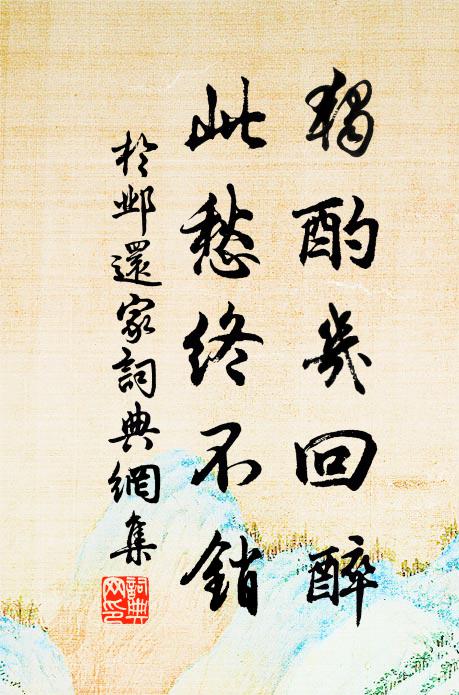 獨酌幾回醉
此愁終不銷
於鄴還家詞典網集
詞典
文印